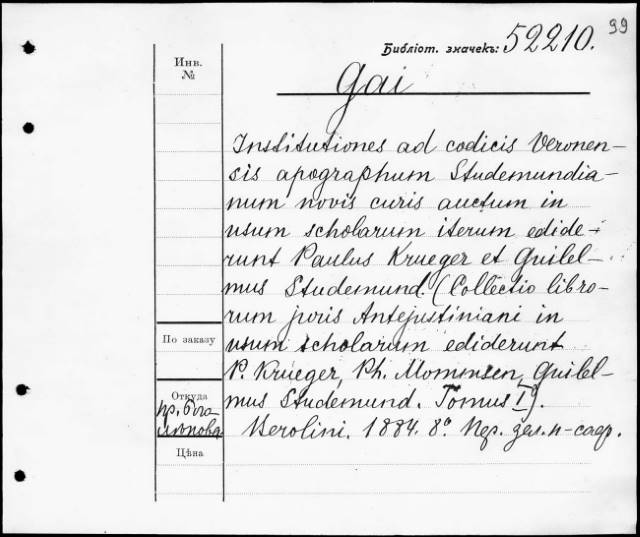 99
Библіот. значекъ: 52210.
Инв.
№
Gai
Institutiones ad codicis Veronen-
sis apographum Studemundia-
num novis curis auctum in
usum scholarum iterum edide-
runt Paulus Krueger et Guilel-
mus Studemund. (Collectio libro-
rum juris Antejustiniani in
usum scholarum ediderunt
P. Krueger, Ph. Mommsen, Guilel-
mus Studemund. Tomus I).
Berolini. 1884. 8º
По заказу
Откуда
Цѣна